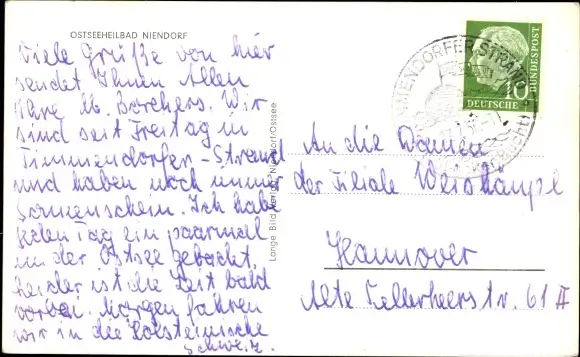 OSTSEEHEILBAD NIENDORF
Viele Grüße von hier
sendet Ihnen Allen
Ihre M. Borchers. Wir
sind seit Freitag in
Timmendorfer-Strand
und haben noch immer
Sonnenschein. Ich habe
jeden Tag ein paarmal
in der Ostsee gebadet.
Leider ist die Zeit bald
vorbei. Morgen fahren
wir in die Holsteinische
Schweiz.
Lange Bild Verlag Niendorf/Ostsee
MMENDORFER STRAND
10
DEUTSCHE
BUNDESPOST
An die Damen
der Filiale Weishäupl
Hannover
Alte Cellerheerstr. 61 II